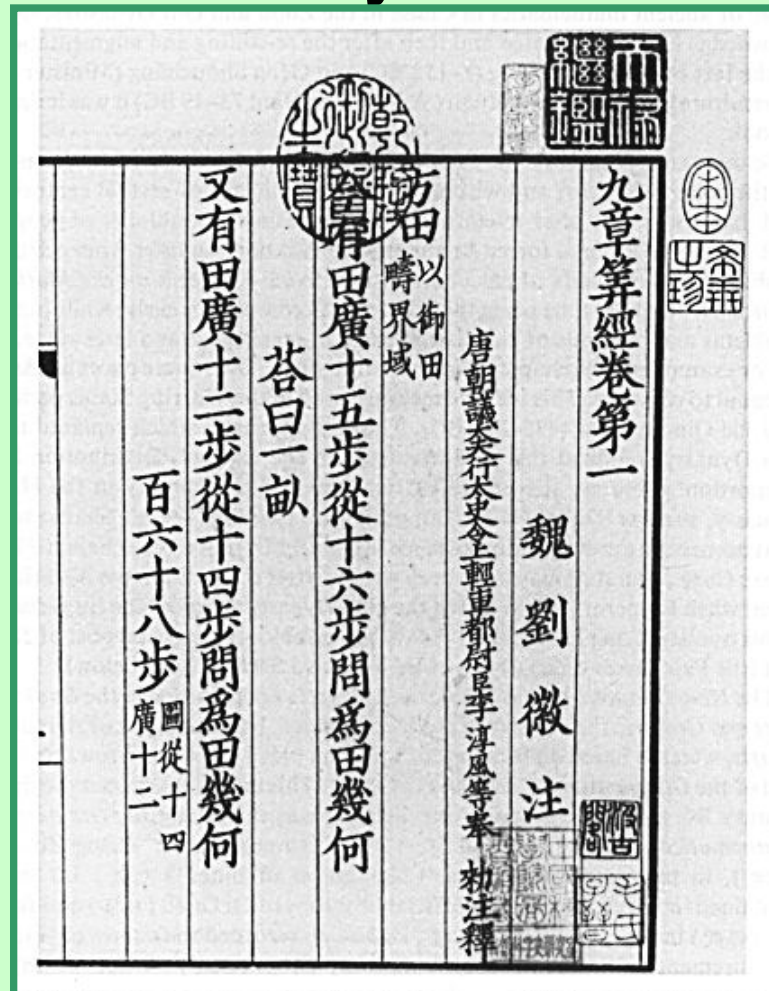 天祿繼鑑
宋本
希世之珍
乾隆御覽之寶
九章筭經卷第一
魏劉徽注
唐朝議大夫行太史令上輕車都尉臣李淳風等奉 勑注釋
方田以御田
疇界域
今有田廣十五步從十六步問爲田幾何
荅曰一畝
又有田廣十二步從十四步問爲田幾何
百六十八步圖從十四
廣十二
汲古閣